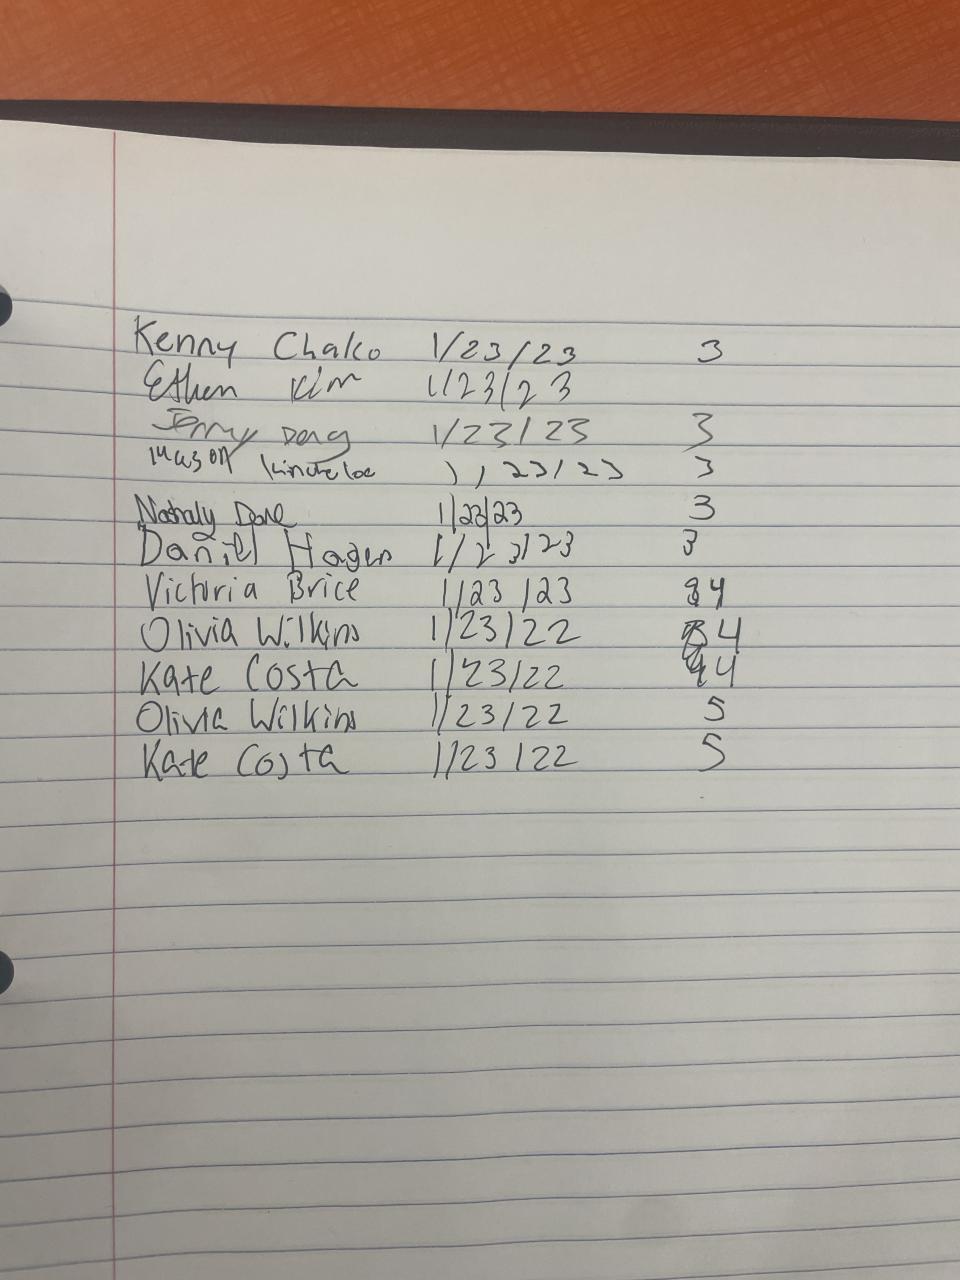 Kenny Chako 1/23/23 3
Ethan Kim 1/23/23
Jerry Deng 1/23/23 3
Mason Kincheloe 1/23/23 3
Nataly Done 1/23/23 3
Daniel Hagen 1/23/23 3
Victoria Brice 1/23/23 4
Olivia Wilkins 1/23/22 4
Kate Costa 1/23/22 4
Olivia Wilkins 1/23/22 5
Kate Costa 1/23/22 5